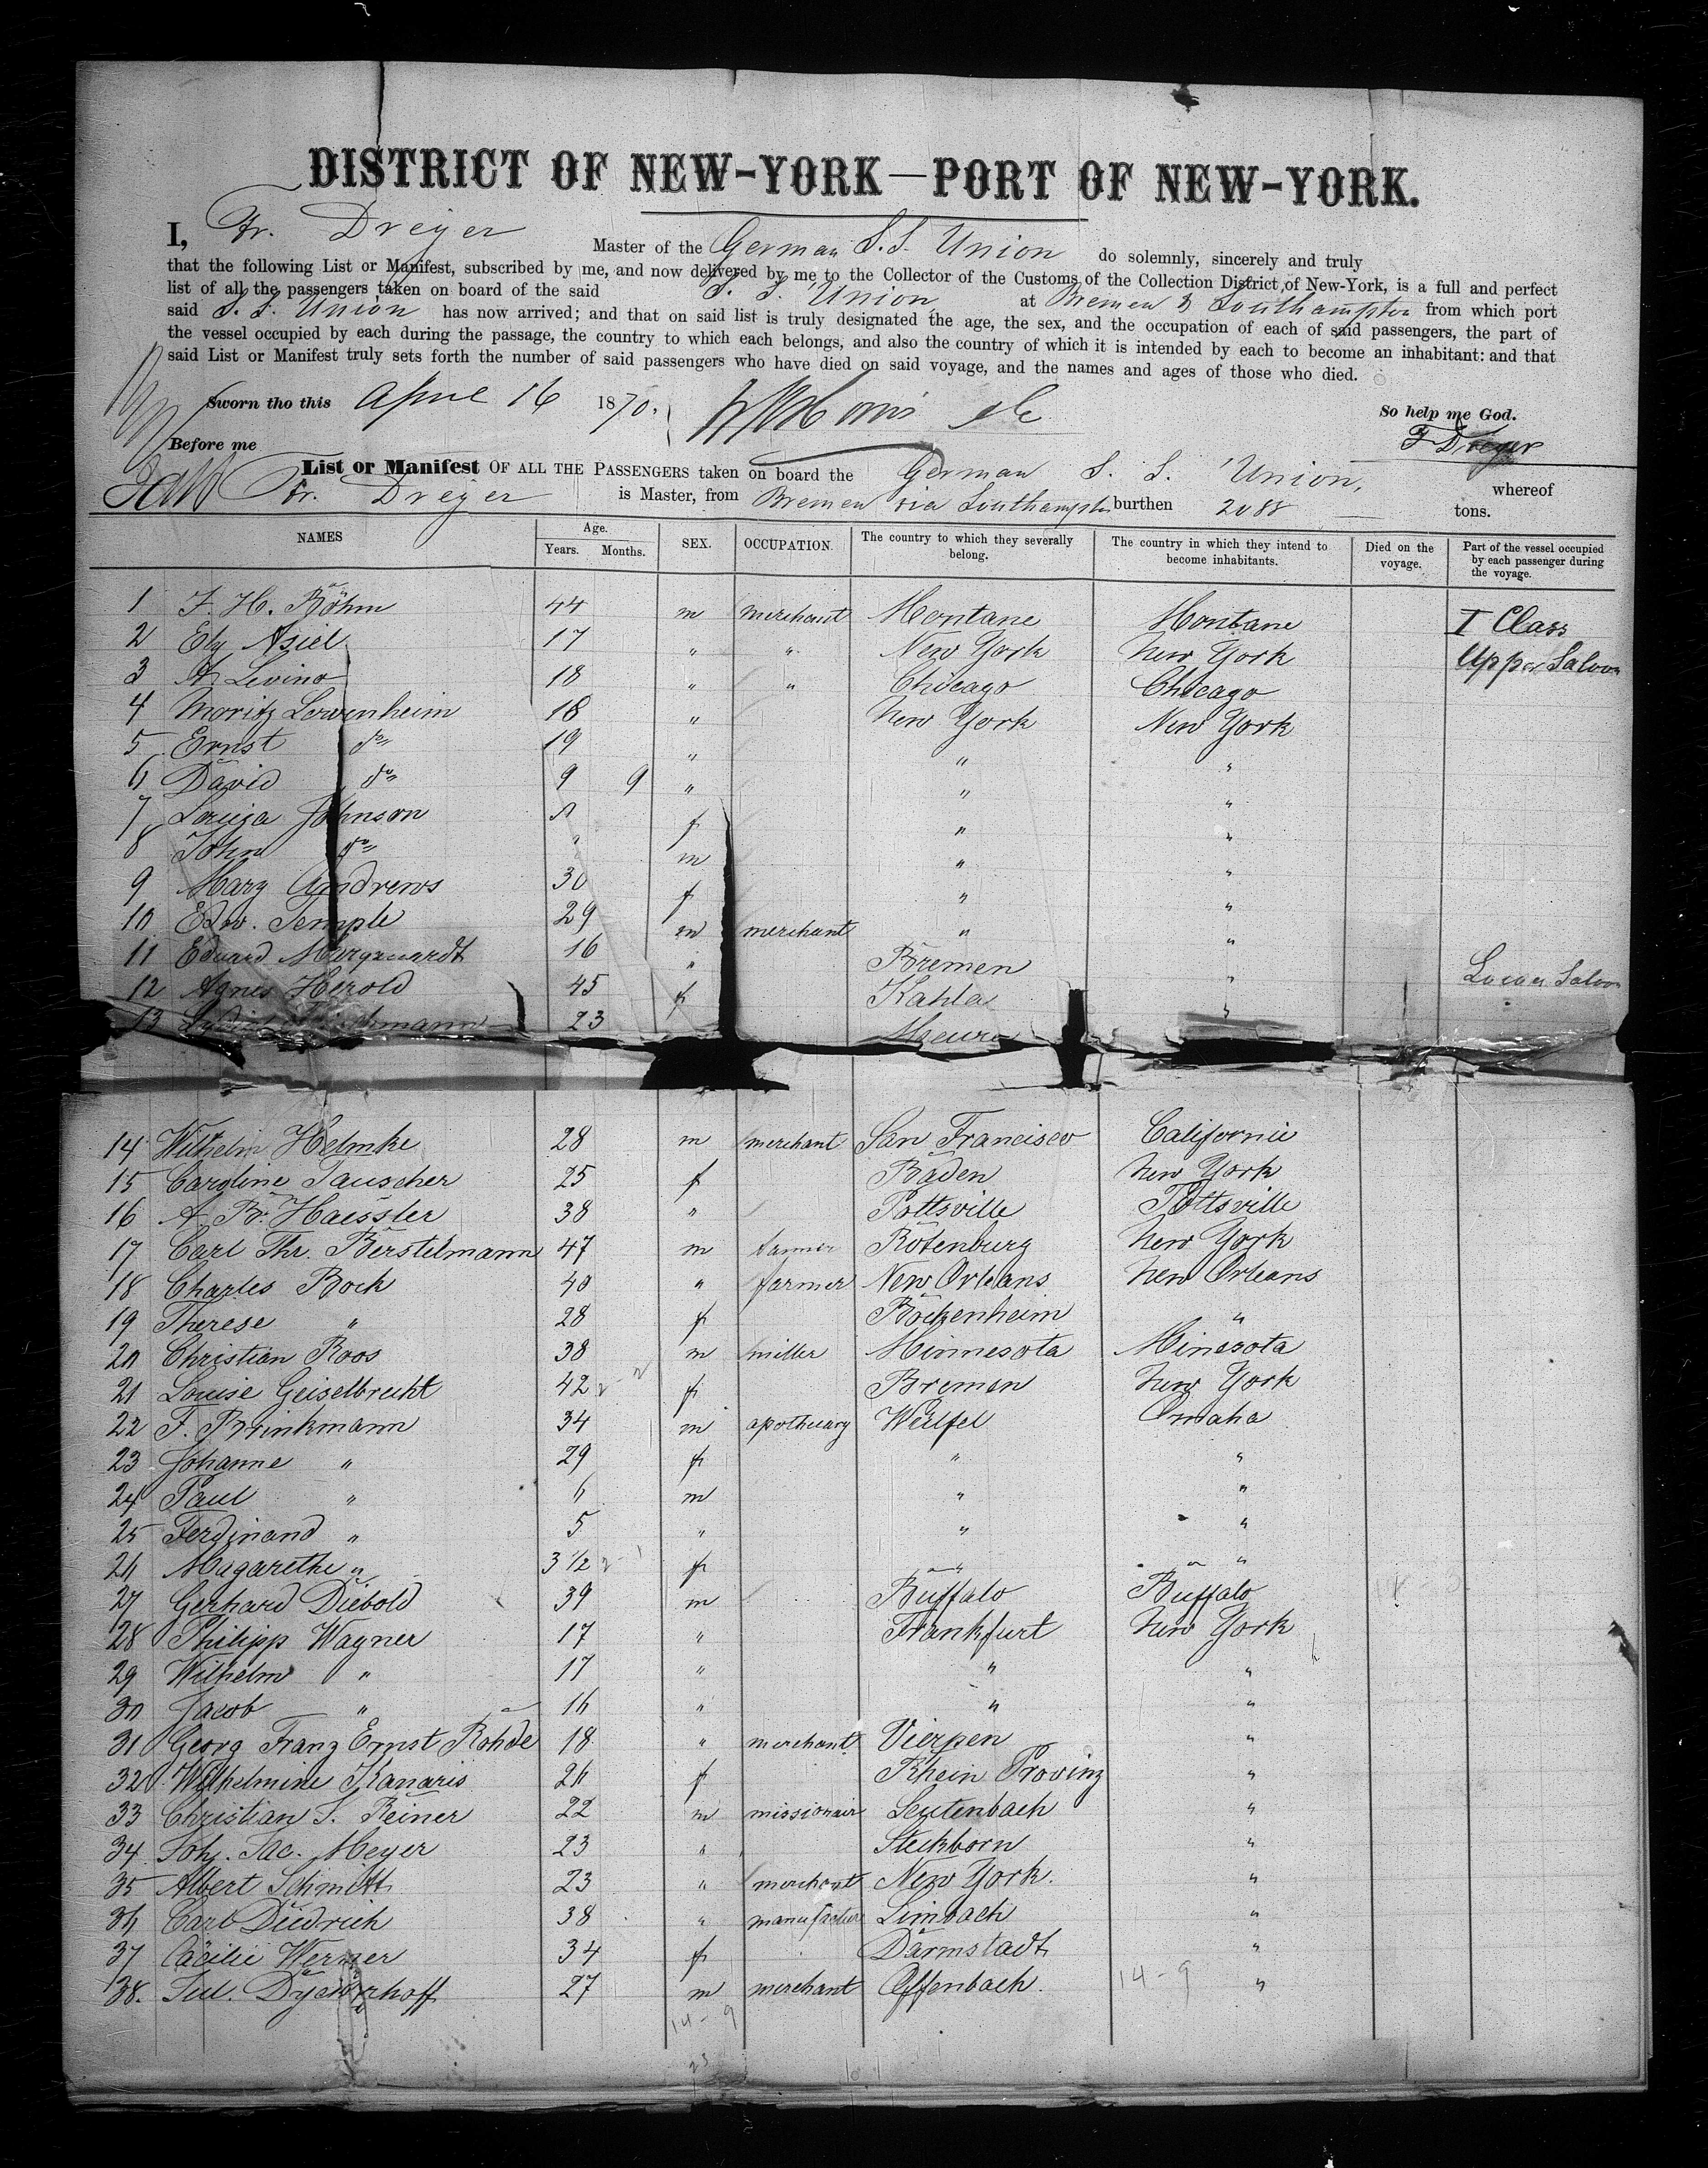 DISTRICT OF NEW-YORK—PORT OF NEW-YORK.
I, Fr. Dreyer Master of the German S.S. Union do solemnly, sincerely and truly
that the following List or Manifest, subscribed by me, and now delivered by me to the Collector of the Customs of the Collection District of New-York, is a full and perfect
list of all the passengers taken on board of the said S. S. Union at Bremen & Southampton from which port
said S. S. Union has now arrived; and that on said list is truly designated the age, the sex, and the occupation of each of said passengers, the part of
the vessel occupied by each during the passage, the country to which each belongs, and also the country of which it is intended by each to become an inhabitant: and that
said List or Manifest truly sets forth the number of said passengers who have died on said voyage, and the names and ages of those who died.
Sworn tho this April 16 1870. So help me God.
Before me F Dreyer
List or Manifest OF ALL THE PASSENGERS taken on board the German S. S. Union, whereof
Fr. Dreyer is Master, from Bremen via Southampton burthen 2088 tons.
NAMES Age. Years. Months. SEX. OCCUPATION. The country to which they severally belong. The country in which they intend to become inhabitants. Died on the voyage. Part of the vessel occupied by each passenger during the voyage.
1 F. H. Böhm 44 m merchant Montane Montane I Class
2 Ely Asiel 17 " " New York New York Upper Saloon
3 A Levino 18 " " Chicago Chicago
4 Moritz Lewenheim 18 " New York New York
5 Ernst do 19 " " "
6 David do 9 9 " " "
7 Louisa Johnson f " "
8 John do " m " "
9 Mary Andrews 30 f " "
10 Edw. Temple 29 m merchant " "
11 Eduard Marquardt 16 " Bremen "
12 Agnes Herold 45 f Kahla " Lower Saloon
13 23
14 Wilhelm Helmke 28 m merchant San Francisco Californie
15 Caroline Tauscher 25 f Baden New York
16 A. Br. Haessler 38 " Pottsville Pottsville
17 Carl Thr. Berstelmann 47 m Rotenburg New York
18 Charles Bock 40 " farmer New Orleans New Orleans
19 Therese " 28 f Bockenheim "
20 Christian Roos 38 m miller Minnesota Minesota
21 Louise Geiselbrecht 42 f Bremen New York
22 F. Brinkmann 34 m apothecary Wülfel Omaha
23 Johanne " 29 f " "
24 Paul " 6 m " "
25 Ferdinand " 5 " " "
26 Magarethe " 3 1/2 f " "
27 Gerhard Diebold 39 m Buffalo Buffalo
28 Philipp Wagner 17 " Frankfurt New York
29 Wilhelm " 17 " " "
30 Jacob " 16 " " "
31 Georg Franz Ernst Rohde 18 " merchant Vierpen "
32 Wilhelmine Kanaris 26 f Rhein Provinz "
33 Christian S. Reiner 22 m missionair Leutenbach "
34 Joh. Jac. Meyer 23 " Steckborn "
35 Albert Schmitt 23 " merchant New York. "
36 Carl Diedrich 38 " manufacturer Limbach "
37 Cäcilie Werner 34 f Darmstadt "
38. Jul. Dyckerhoff 27 m merchant Offenbach. 14-9 "
14-9